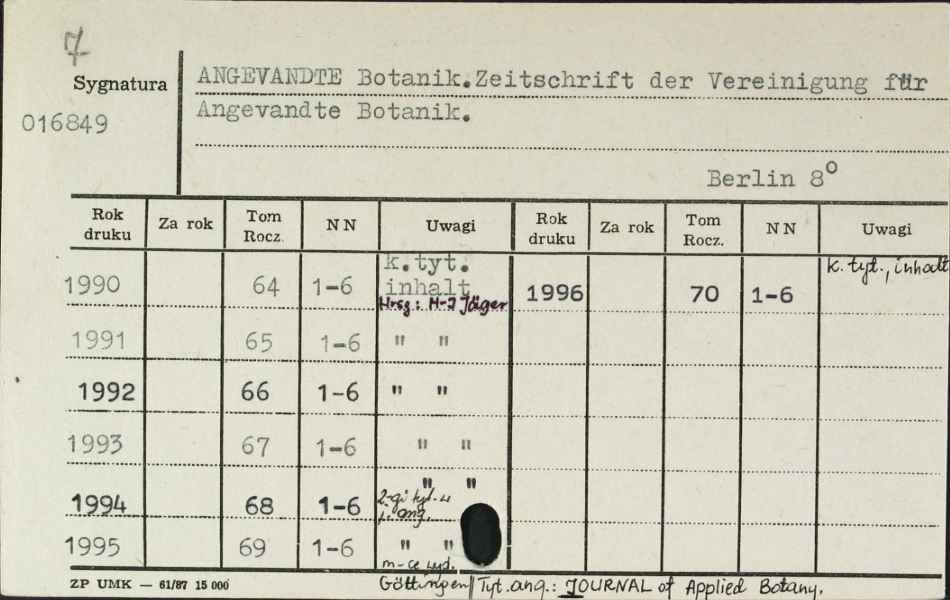 7
Sygnatura
016849
ANGEVANDTE Botanik.Zeitschrift der Vereinigung für
Angevandte Botanik.
Berlin 8º
Rok druku Za rok Tom Rocz. NN Uwagi Rok druku Za rok Tom Rocz. NN Uwagi
1990 64 1-6 k.tyt. inhalt Hrsg: H-J Jäger 1996 70 1-6 k. tyt., inhalt
1991 65 1-6 " "
1992 66 1-6 " "
1993 67 1-6 " "
1994 68 1-6 " " 2-gi tyt. w j. ang.
1995 69 1-6 " " m-ce wyd. Göttingen
Tyt. ang.: JOURNAL of Applied Botany.
ZP UMK — 61/87 15 000